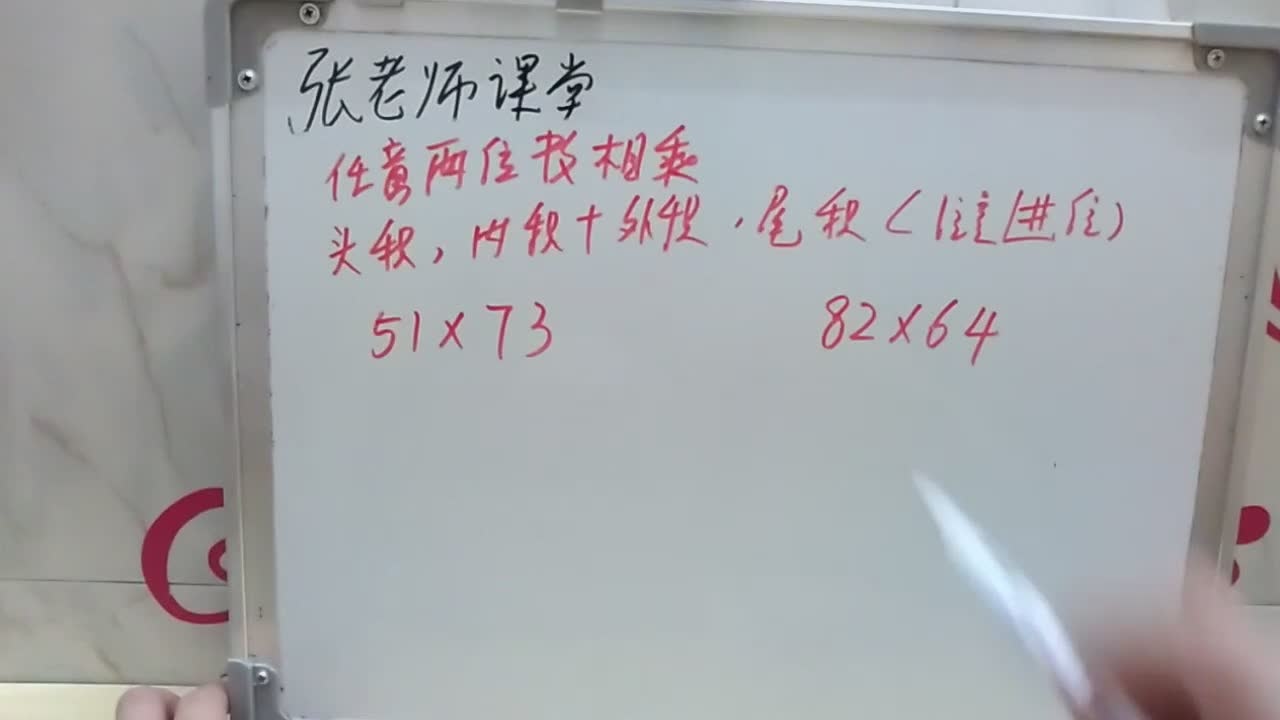 张老师课堂
任意两位数相乘
头积，内积+外积，尾积（注意进位）
51×73
82×64